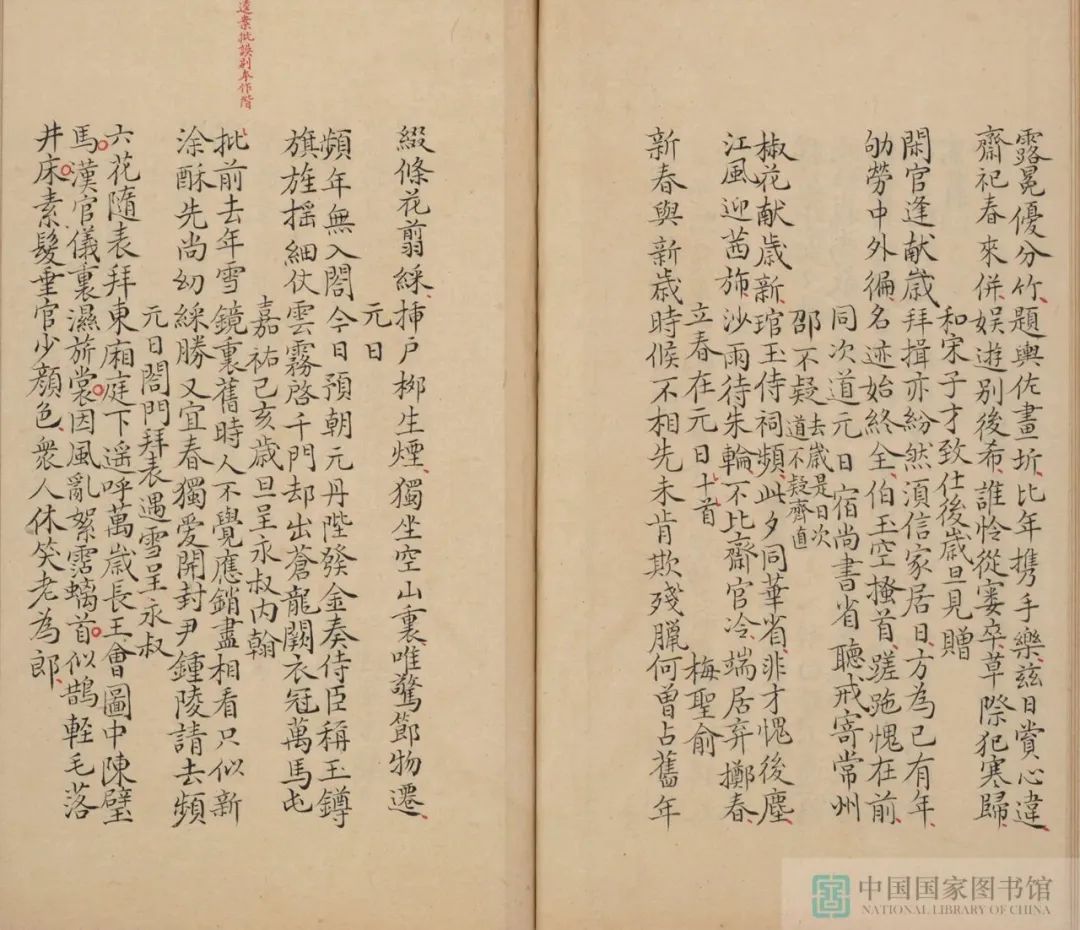 露冕優分竹題輿佐畫圻比年携手樂兹日賞心違
齋祀春來併娱遊別後希誰憐從寠卒草際犯寒歸
和宋子才致仕後歲旦見贈
閑官逢献歲拜揖亦紛然須信家居日方為已有年
劬勞中外徧名迹始終全伯玉空搔首蹉跎愧在前
同次道元日宿尚書省聽戒寄常州
邵不疑去歲是日次道不疑齊直
椒花献歲新琯玉侍祠頻此夕同華省非才愧後塵
江風迎茜斾沙雨待朱輪不比齋官冷端居弃擲春
立春在元日十首 梅聖俞
新春與新歲時候不相先未肯欺殘臘何曾占舊年
綴條花翦綵挿戶栁生煙獨坐空山裏唯驚節物遷
元日
頻年無入閤今日預朝元丹陛發金奏侍臣稱玉鐏
旗旌揺細仗雲霧啓千門却出蒼龍闕衣冠萬馬屯
嘉祐己亥歲旦呈永叔内翰
批前去年雪鏡裏舊時人不覺應銷盡相看只似新
涂酥先尚幼綵勝又宜春獨爱開封尹鍾陵請去頻
元日閤門拜表遇雪呈永叔
六花隨表拜東廂庭下遥呼萬歲長王會圖中陳璧
馬漢官儀裏濕旂裳因風亂絮霑螭首似鵲輕毛落
井床素髮垂官少顔色衆人休笑老為郎
遠案批誤別本作階
中国国家图书馆
NATIONAL LIBRARY OF CHINA